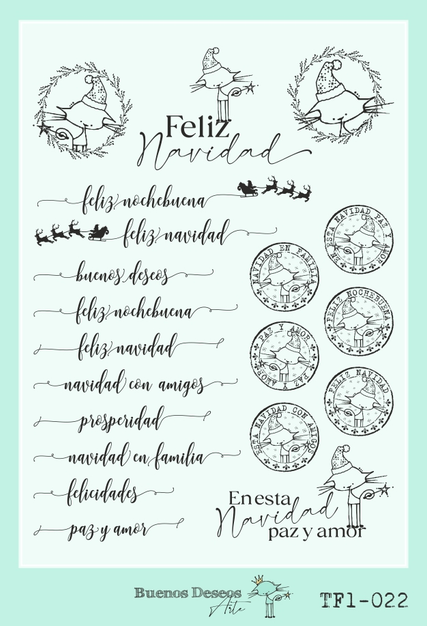 Feliz
Navidad
feliz nochebuena
feliz navidad
buenos deseos
feliz nochebuena
feliz navidad
navidad con amigos
prosperidad
navidad en familia
felicidades
paz y amor
EN ESTA NAVIDAD PAZ Y AMOR
NAVIDAD EN FAMILIA
FELIZ NOCHEBUENA
PAZ Y AMOR PAZ Y AMOR
FELIZ NAVIDAD
ESTA NAVIDAD CON AMIGOS
En esta
Navidad
paz y amor
Buenos Deseos
Arte
TF1-022